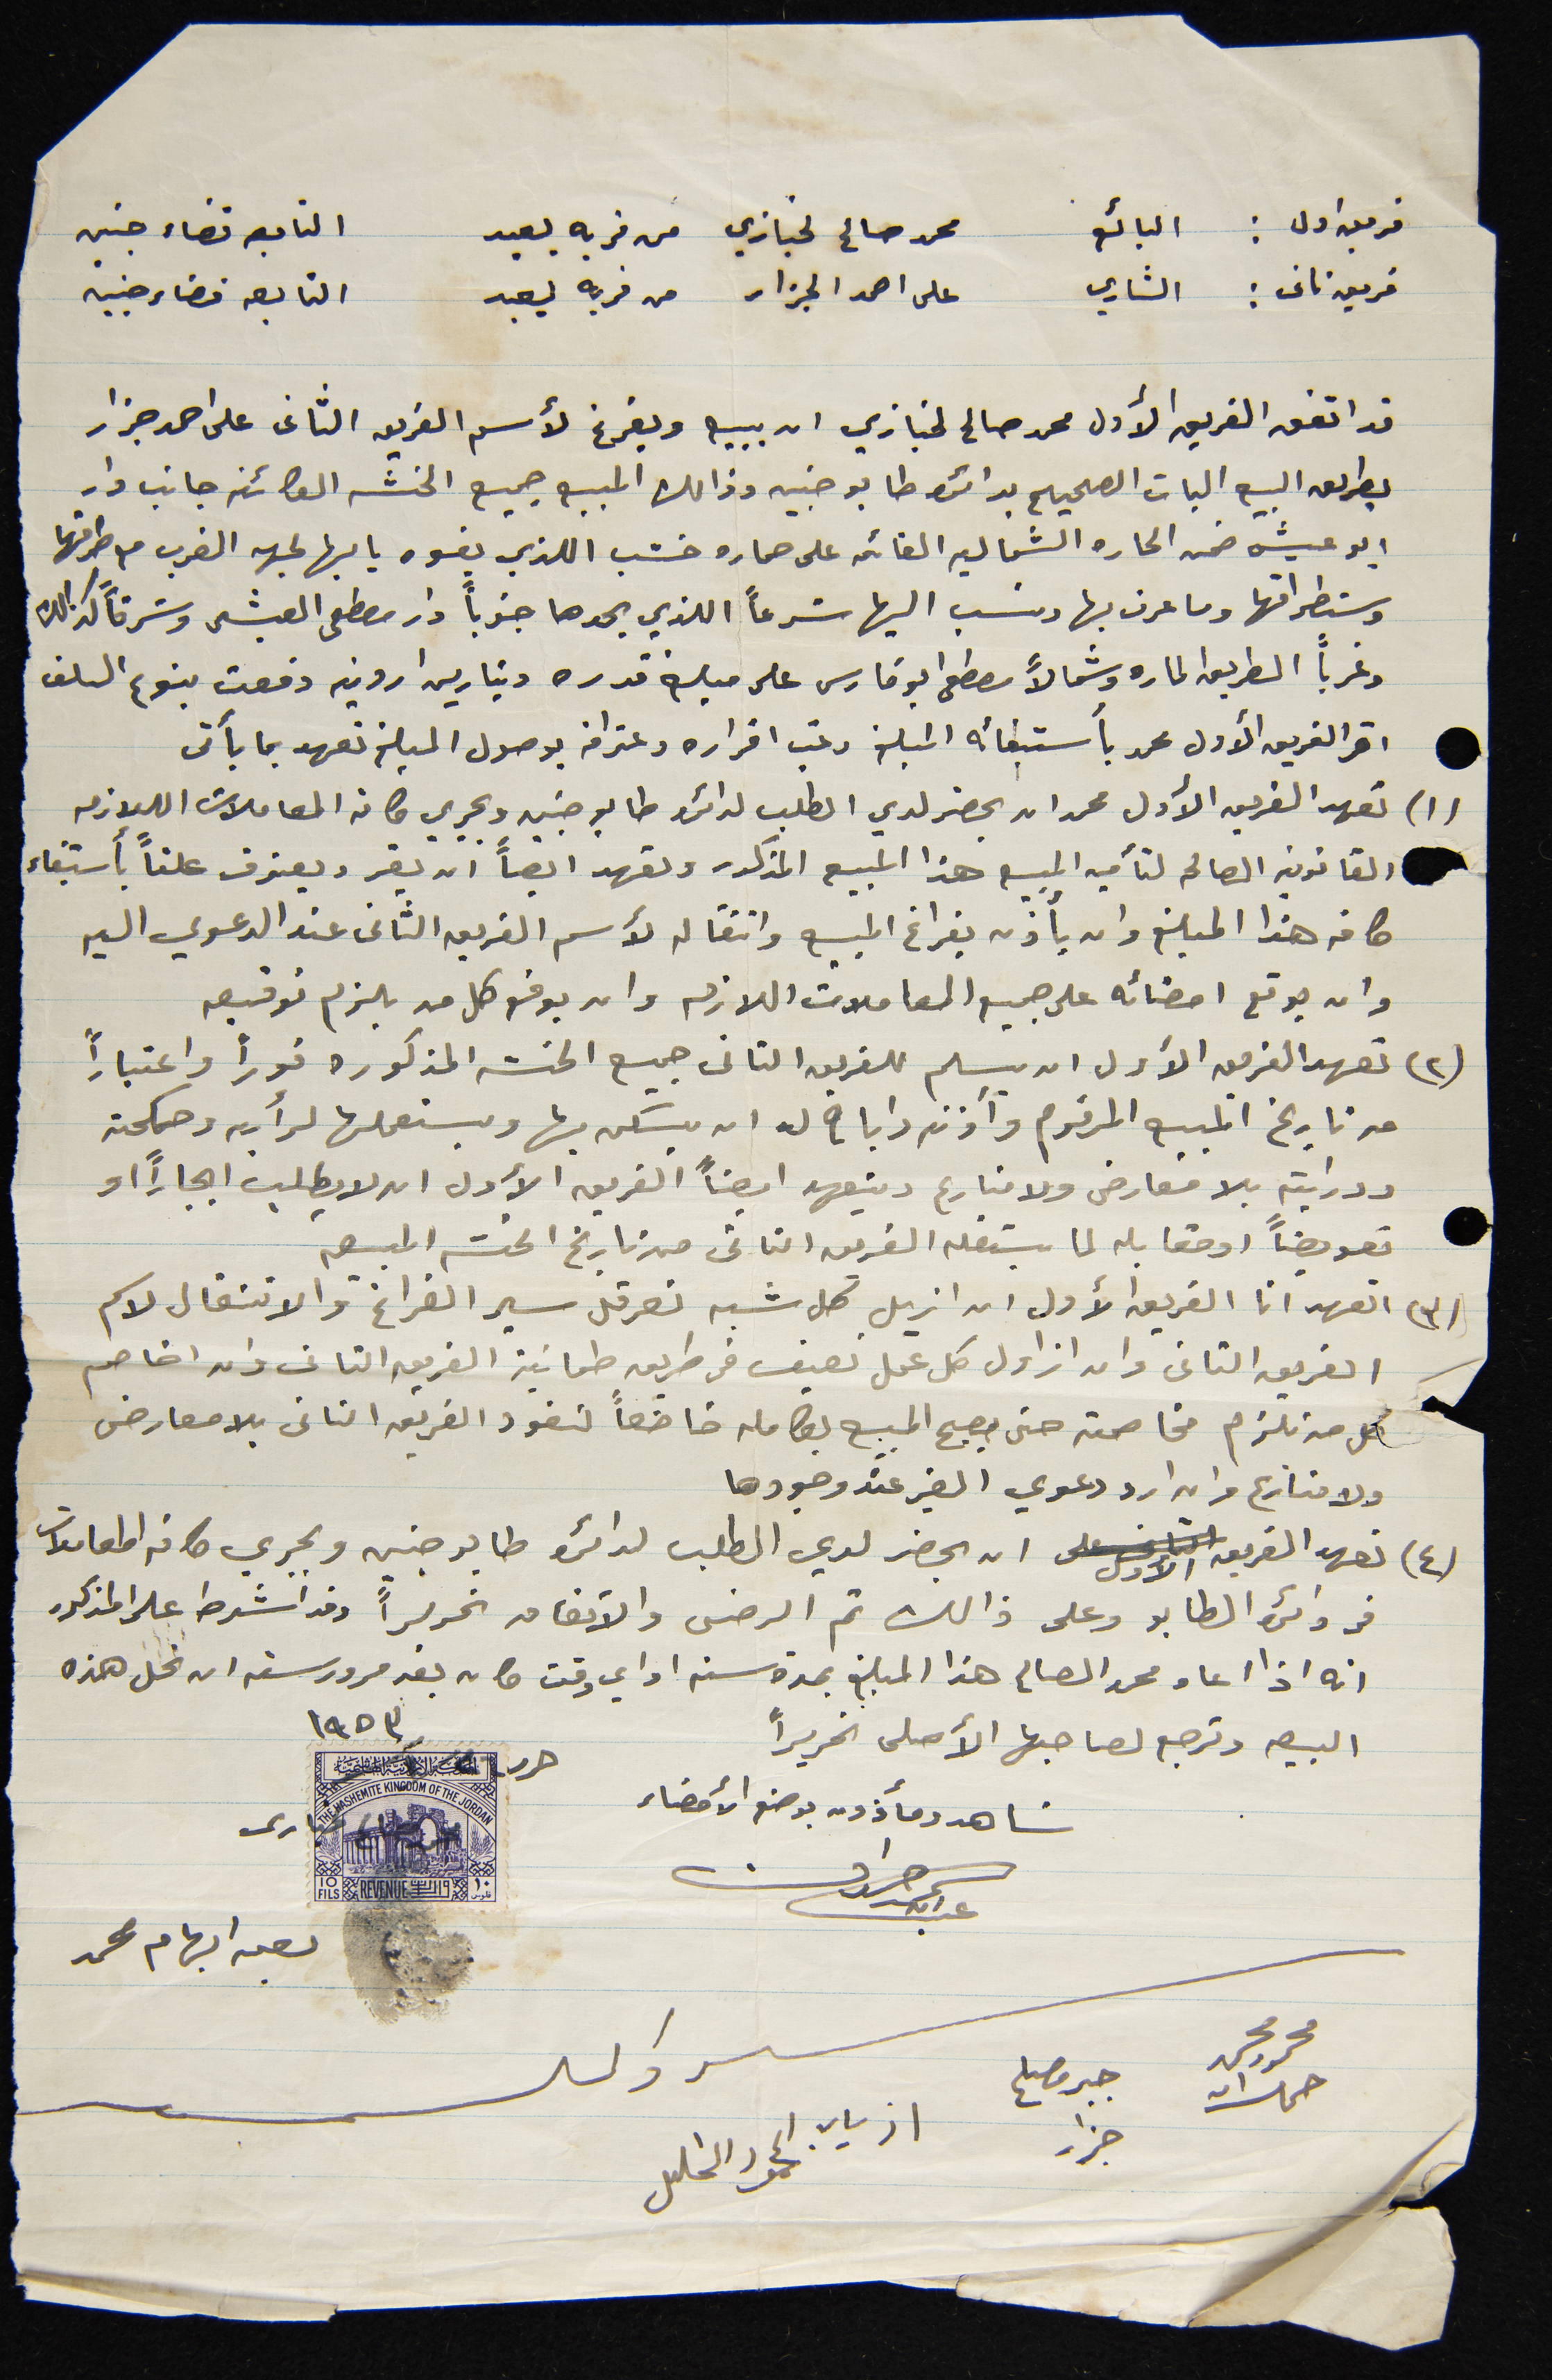 فريق اول : البائع محمد صالح لخبازي من قريه يعبد التابعه قضاء جنين
فريق ثاني : الشاري علي احمد الجزار من قريه يعبد التابعه قضاء جنين
قد اتفق الفريق الأول محمد صالح لخبازي ان يبيع ويفرغ لأسم الفريق الثاني علي احمد جزار
بطريق البيع البات الصحيح بدائرة طابو جنين وذالك المبيع جميع الخشه الكائنه جانب دار
ابو عيشه ضمن الحاره الشماليه القائمه على حماره خشب اللذي يفوه بابها لجهه الغرب مع طرقها
وستطراقها وما عرف بها ونسب اليها شرعاً اللذي يحدها جنوباً دار مصطفى العيشه وشرقاً كذالك
وغرباً الطريق الماره وشمالاً مصطفى ابو فارس على مبلغ قدره دينارين اردنيه دفعت بنوع السلف
اقر الفريق الأول محمد بأستيفائه المبلغ وعقب اقراره وعترافه بوصول المبلغ تعهد بما يأتي
(١) تعهد الفريق الأول محمد ان يحضر لدي الطلب لدائرة طابو جنين ويجري كافة المعاملات اللازمه
القانونيه الصالحه لتأمين المبيع هذا المبيع المذكور وتعهد ايضاً ان يقر ويعترف علناً بأستيفاء
كافه هذا المبلغ وان يأذن بفراغ المبيع وانتقاله لأسم الفريق الثاني عند الدعوي اليه
وان يوقع امضائه على جميع المعاملات اللازمه وان يوقع كل من يلزم توقيعه
(٢) تعهد الفريق الأول ان يسلم للفريق الثاني جميع الخشه المذكوره فوراً واعتباراً
من تاريخ المبيع المرقوم وأذنه واباح له ان يسكن بها ويستعملها لرأيه وحكمته
ودرايته بلا معارض ولا منازع ويتعهد ايضاً الفريق الأول ان لا يطلب ايجاراً او
تعويضاً او مقابله لما يستغله الفريق الثاني من تاريخ الخشه المبيعه
(٣) اتعهد انا الفريق الأول ان ازيل كل شبه تعرقل سير الفراغ والانتقال لاسم
الفريق الثاني وان ازاول كل عمل يقف في طريق طمانينة الفريق الثاني وان اخاصم
كل من تلزم مخاصمته حتى يصبح المبيع بكامله خاضعاً لنفوذ الفريق الثاني بلا معارض
ولا منازع وان ارد دعوي الغير عند وجودها
(٤) تعهد الفريق الأول ان يحضر لدي الطلب لدائرة طابو جنين ويجري كافه المعاملات
في دائرة الطابو وعلى ذالك تم الرضى والاتفاق تحريراً وقد اشترط على المذكور
انه اذا اعاد محمد الصالح هذا المبلغ بمدة سنه او اي وقت كان بعد مرور سنه ان تحل هذه
البيعه وترجع لصاحبها الأصلى تحريراً
حرر ١٩٥٣
THE HASHEMITE KINGDOM OF THE JORDAN
10 FILS REVENUE ١٠ فلوس
شاهد ومأذون بوضع الأمضاء
بصمه ابهام محمد
محمود محمد
جبر مصلح
جزار
محمود الخليل